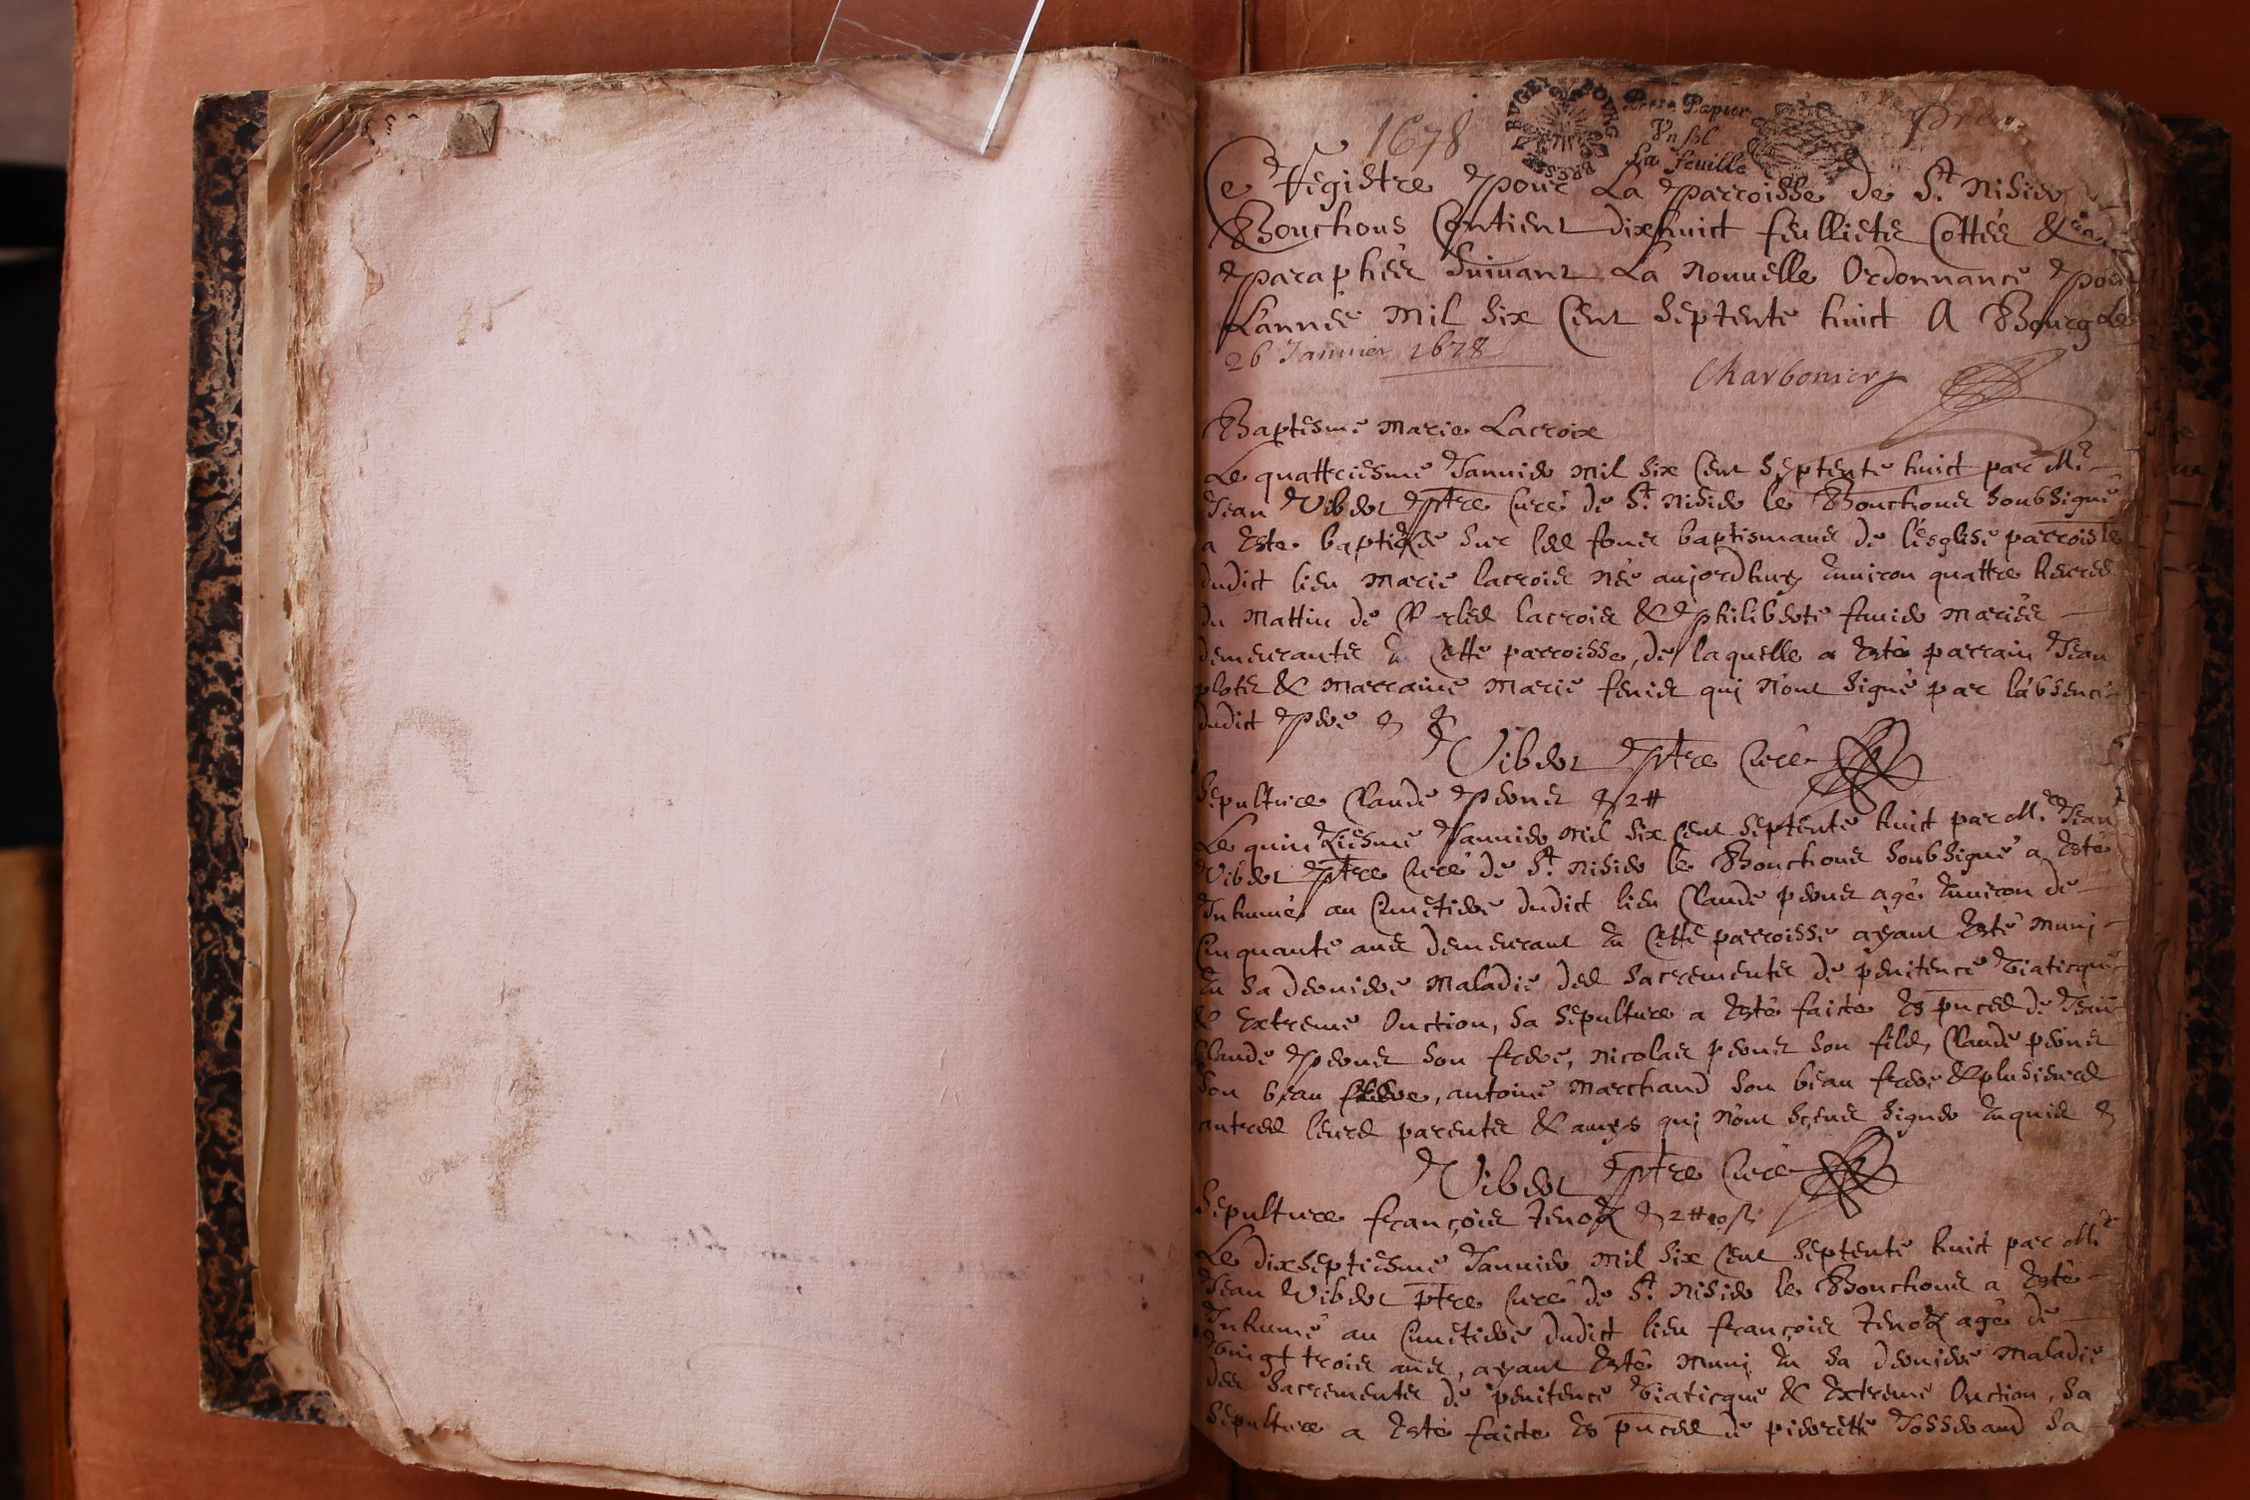 1678
BUGEY BRESSE
Petit Papier
Un sol
La feuille
Ce Registre pour La parroisse de St. Nisier
Bouchous Contient dixhuict feullietes Cottés &
paraphés suivant La Nouvelle Ordonnance pour
L'année Mil Six Cent Septente huict A Bourg Le
26 Januier 1678
Charbonier
Baptesme Marie Lacroix
Le quattriesme Januier Mil Six Cent Septente huict par Me
Jean Viber ptre Curé de St. Nisier le Bouchous soubsigné
a Esté baptisée sur les fons baptismaus de l'esglise parroissle
dudict lieu Marie lacrois née aujordhuy Enuiron quattre heures
du Mattin de lacrois & philiberte Mariés
demeurantes En Cette parroisse, de laquelle a Esté parrain Jean
& Marraine Marie qui n'ont signé par l'absence
dudict pere &
Viber ptre Curé
Sepulture Claude peonet & 2 tt
Le quinziesme Januier Mil Six Cent Septente huict par Me Jean
Viber ptre Curé de St. Nisier le Bouchous soubsigné a Esté
Inhumé au Cimetiere dudict lieu Claude peonet agé Enuiron de
Cinquante ans demeurant En Cette parroisse ayant Esté Muni
En sa derniere Maladie des sacrementes de penitence Viaticque
& Extreme Onction, sa sepulture a Esté faicte Es pnces de Jean
Claude peonet son frere, Nicolas peonet son fils, Claude peonet
son beau frere, antoine Marchand son beau frere & plusieurs
autres leurs parentes & amys qui n'ont sçeus signer Enquis &
Viber ptre Curé
Sepulture françois tenoz & 2 tt 10 s
Le dixseptiesme Januier Mil Six Cent Septente huict par Me
Jean Viber ptre Curé de St. Nisier le Bouchous a Esté
Inhumé au Cimetiere dudict lieu françois tenoz agé de
Vingt trois ans, ayant Esté Muni En sa derniere Maladie
des sacrementes de penitence Viaticque & Extreme Onction, sa
sepulture a Esté faicte Es pnces de pierrette Josserand sa